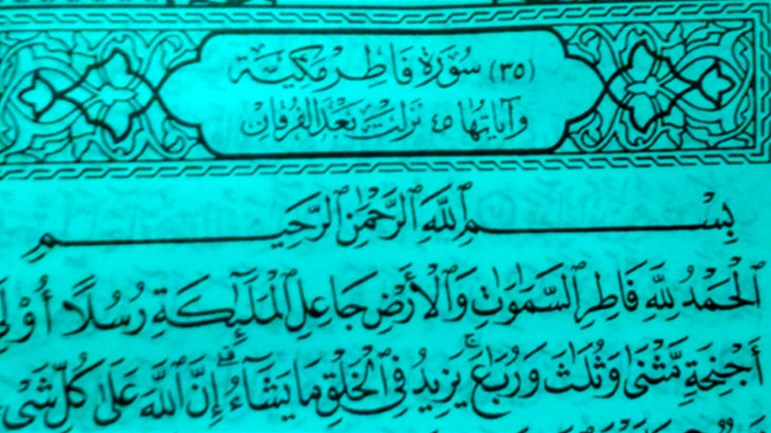 (٣٥) سُورَة فَاطِر مَكِيَّة
وَآيَاتهَا ٤٥ نَزَلَتْ بَعْدَ الفُرْقَان
بِسْمِ ٱللَّهِ ٱلرَّحْمَٰنِ ٱلرَّحِيمِ
ٱلْحَمْدُ لِلَّهِ فَاطِرِ ٱلسَّمَٰوَٰتِ وَٱلْأَرْضِ جَاعِلِ ٱلْمَلَٰٓئِكَةِ رُسُلًا أُو۟لِىٓ
أَجْنِحَةٍ مَّثْنَىٰ وَثُلَٰثَ وَرُبَٰعَ ۚ يَزِيدُ فِى ٱلْخَلْقِ مَا يَشَآءُ ۚ إِنَّ ٱللَّهَ عَلَىٰ كُلِّ شَىْءٍ